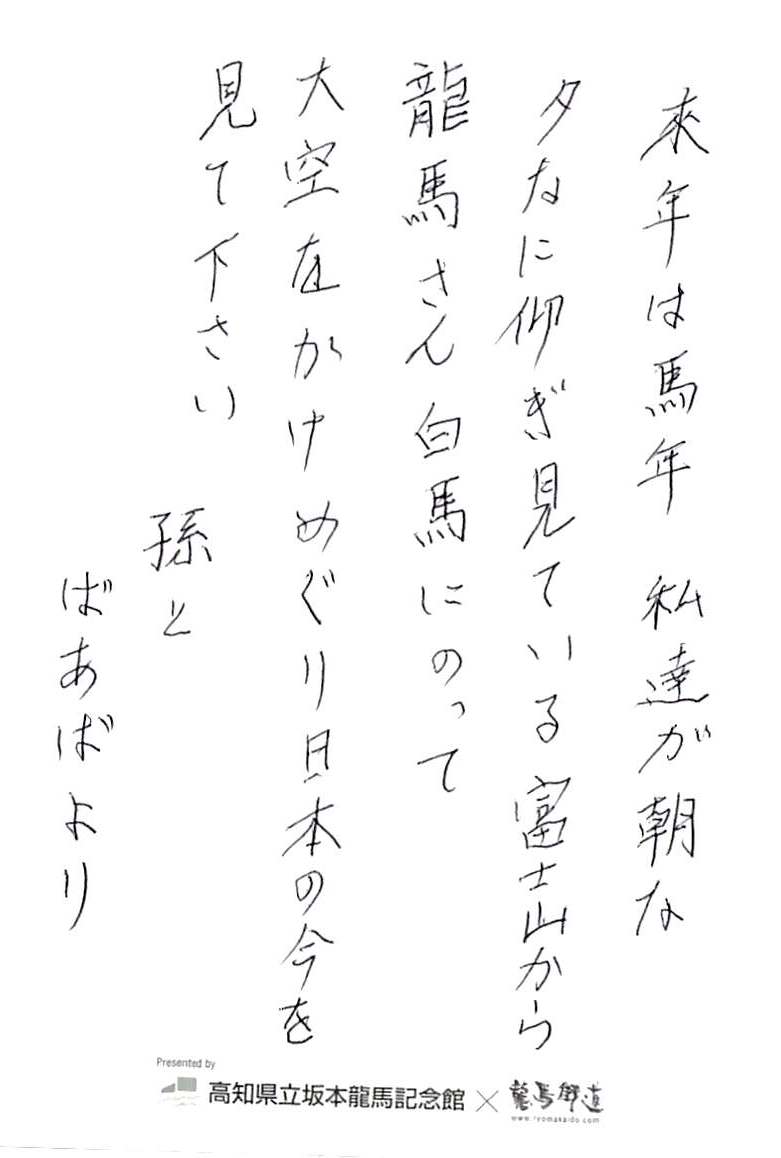 来年は馬年 私達が朝な
夕なに仰ぎ見ている富士山から
龍馬さん白馬にのって
大空をかけめぐり日本の今を
見て下さい
孫と
ばあばより
Presented by
高知県立坂本龍馬記念館×龍馬街道
www.ryomakaido.com